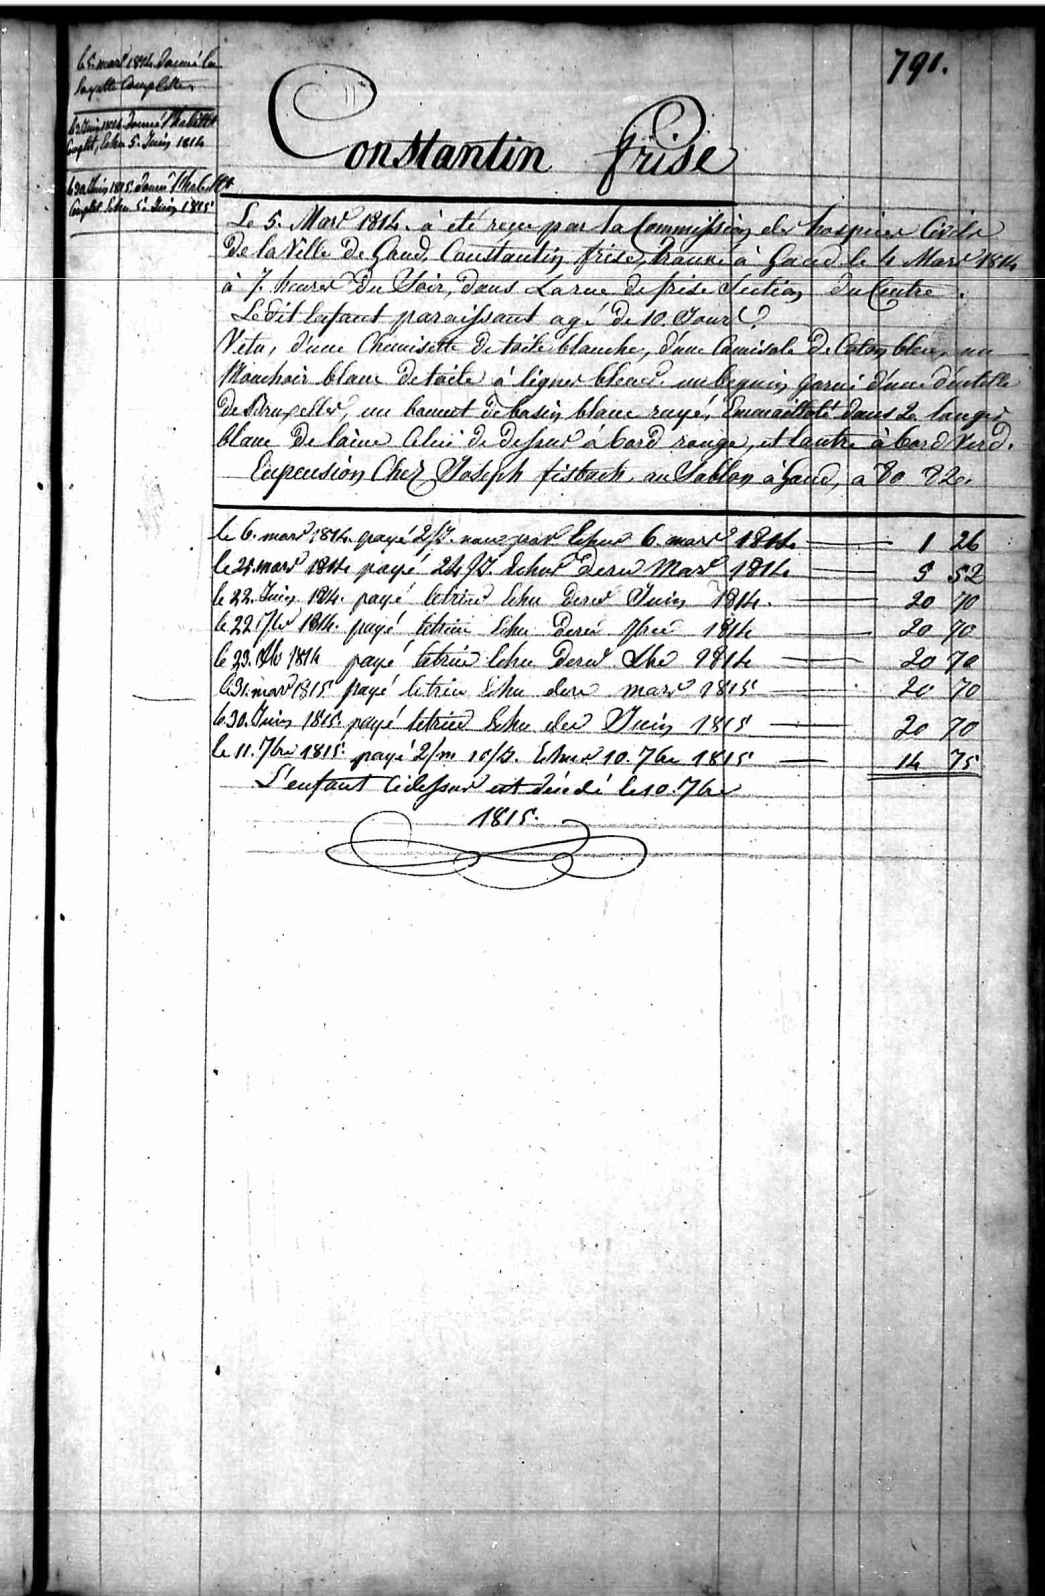 791.
Le 5. mars 1814. donné la
layette Complette
donné l'habillt
Complet, Echu 5. Juin 1814
le 30 Juin 1815. donné l'habillt
Complet Echu 5. Juin 1815
Constantin frise
Le 5. Mars 1814. à été reçu par la Commission des hospices Civils
De la Ville De Gand, Constantin frise, trouvé à Gand le 4 Mars 1814
à 7. heures Du Soir, Dans La rue de frise Section du Centre.
Ledit Enfant paraissant agé de 10. Jours.
Vetu, d'une Chemisette De toile blanche, d'une Camisole De Coton bleu, un
Mouchoir blanc de toile à lignes bleues un beguin garni d'une dentelle
De Bruxelles, un bonnet de basin blanc rayé, Emmailloté dans 2 langes
blanc De laine Celui de dessus à bord rouge, et l'autre à bord Verd.
En pension Chez Joseph fisbach, au Sablon à Gand, à 80 82.
le 6. mars 1814. payé 2/J. Echus 6. mars 1814 1 26
le 21. mars 1814 payé 24/J. Echus Dere Mars 1814 5 52
le 22. Juin 1814. payé letrim Echu dere Juin 1814. 20 70
le 22 7bre 1814. payé letrim Echu dere 7bre 1814 20 70
le 23. Xbre 1814 payé letrim Echu dere Xbre 1814 20 70
le 31. mars 1815 payé letrim Echu dere mars 1815 20 70
le 30. Juin 1815. payé letrim Echu der Juin 1815 20 70
le 11. 7bre 1815. payé 2/m 10/J. Echus 10. 7bre 1815 14 75
L'enfant Cidessus est décédé le 10. 7bre
1815.